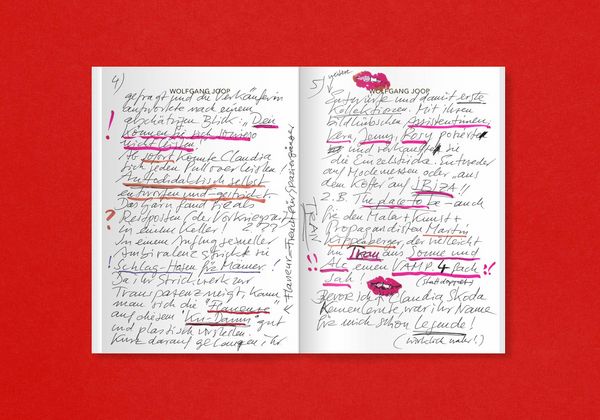 4)
WOLFGANG JOOP
gefragt und die Verkäuferin
antwortete nach einem
geschätzten Blick: „Den
! können Sie sich sowieso
nicht leisten!"
Ab sofort konnte Claudia
sich jeden Pullover leisten!
Autodidaktisch selbst
entworfen und gestrickt.
Das Garn fand sie als
? Restposten der Vorkriegszeit
in einem Keller!
In einem Anflug sexueller
Ambivalenz strickte sie
! Schlag-Hosen für Männer!
Da ihr Strickwerk zur
Transparenz neigt, kann
man sich die "Flaneure"
auf diesem "Ku-Damm" gut
und plastisch vorstellen.
Kurz darauf gelangen ihr
Flaneur = Trend für Spaziergänger
5)
weitere
WOLFGANG JOOP
Entwürfe und damit erste
Kollektionen. Mit ihren
bildhübschen Assistentinnen,
Vera, Jenny, Rosy
und verkaufte sie
die Einzelstücke. Entweder
auf Modemessen oder „aus
dem Koffer auf IBIZA"!!
z.B. The place to be – auch
für den Maler + Kunst +
Propagandisten Martin
Kippenberger, der vielleicht
im Trau aus Sonne und
!! Alc einem VAMP 4 pack !!
(statt
sah!
Bevor ich Claudia Skoda
kennenlernte, war ihr Name
für mich schon Legende!
(wirklich wahr!)
TRAU